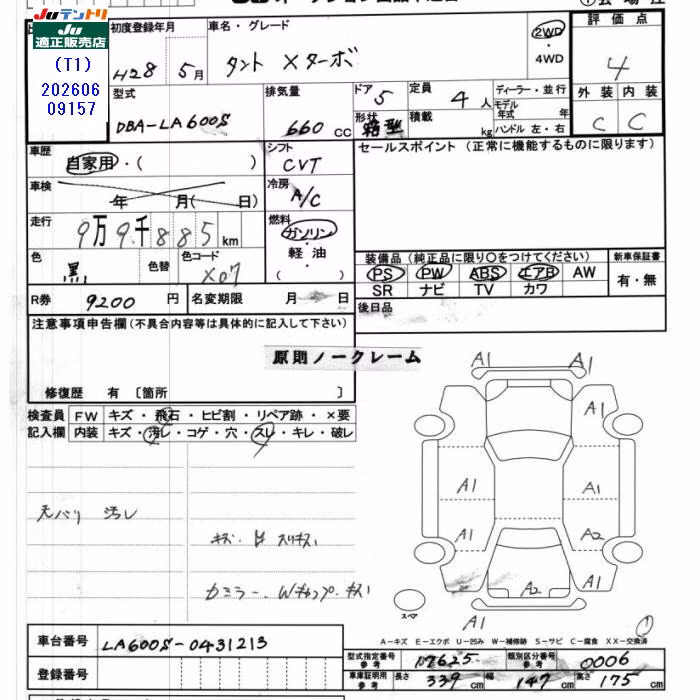 JUテントリ
JU適正販売店
(T1)
202606
09157
初度登録年月 車名・グレード 評価点
H28 5月 タント Xターボ 2WD・4WD 4
型式 排気量 ドア 定員 ディーラー・並行 外装 内装
DBA-LA600S 660 CC 5 4人 モデル年式 年 C C
形状 箱型 積載 kg ハンドル 左・右
車歴 シフト セールスポイント (正常に機能するものに限ります)
自家用・( ) CVT
車検 年 月( 日) 冷房 A/C
走行 9万9千885km 燃料 ガソリン・軽油・( )
色 黒 色替 色コード X07
装備品 (純正品に限り○をつけてください) 新車保証書
PS PW ABS エアB AW 有・無
SR ナビ TV カワ
R券 9200円 名変期限 月 日 後日品
注意事項申告欄(不具合内容等は具体的に記入して下さい)
原則ノークレーム
修復歴 有 〔箇所 〕
検査員 FW キズ・飛石・ヒビ割・リペア跡・×要
記入欄 内装 キズ・汚レ・コゲ・穴・スレ・キレ・破レ
A1 A1
A1
A1 A1
A1 A2
A2 A1
A1
天バリ 汚レ
キズ・ スリキズ
カミラー・Wキャップ・キズ
スペア
①
A-キズ E-エクボ U-凹み W-補修跡 S-サビ C-腐食 XX-交換済
車台番号 LA600S-0431213
登録番号
型式指定番号 参考 17625 類別区分番号 参考 0006
車庫証明用 参考 長さ 339cm 幅 147cm 高さ 175cm